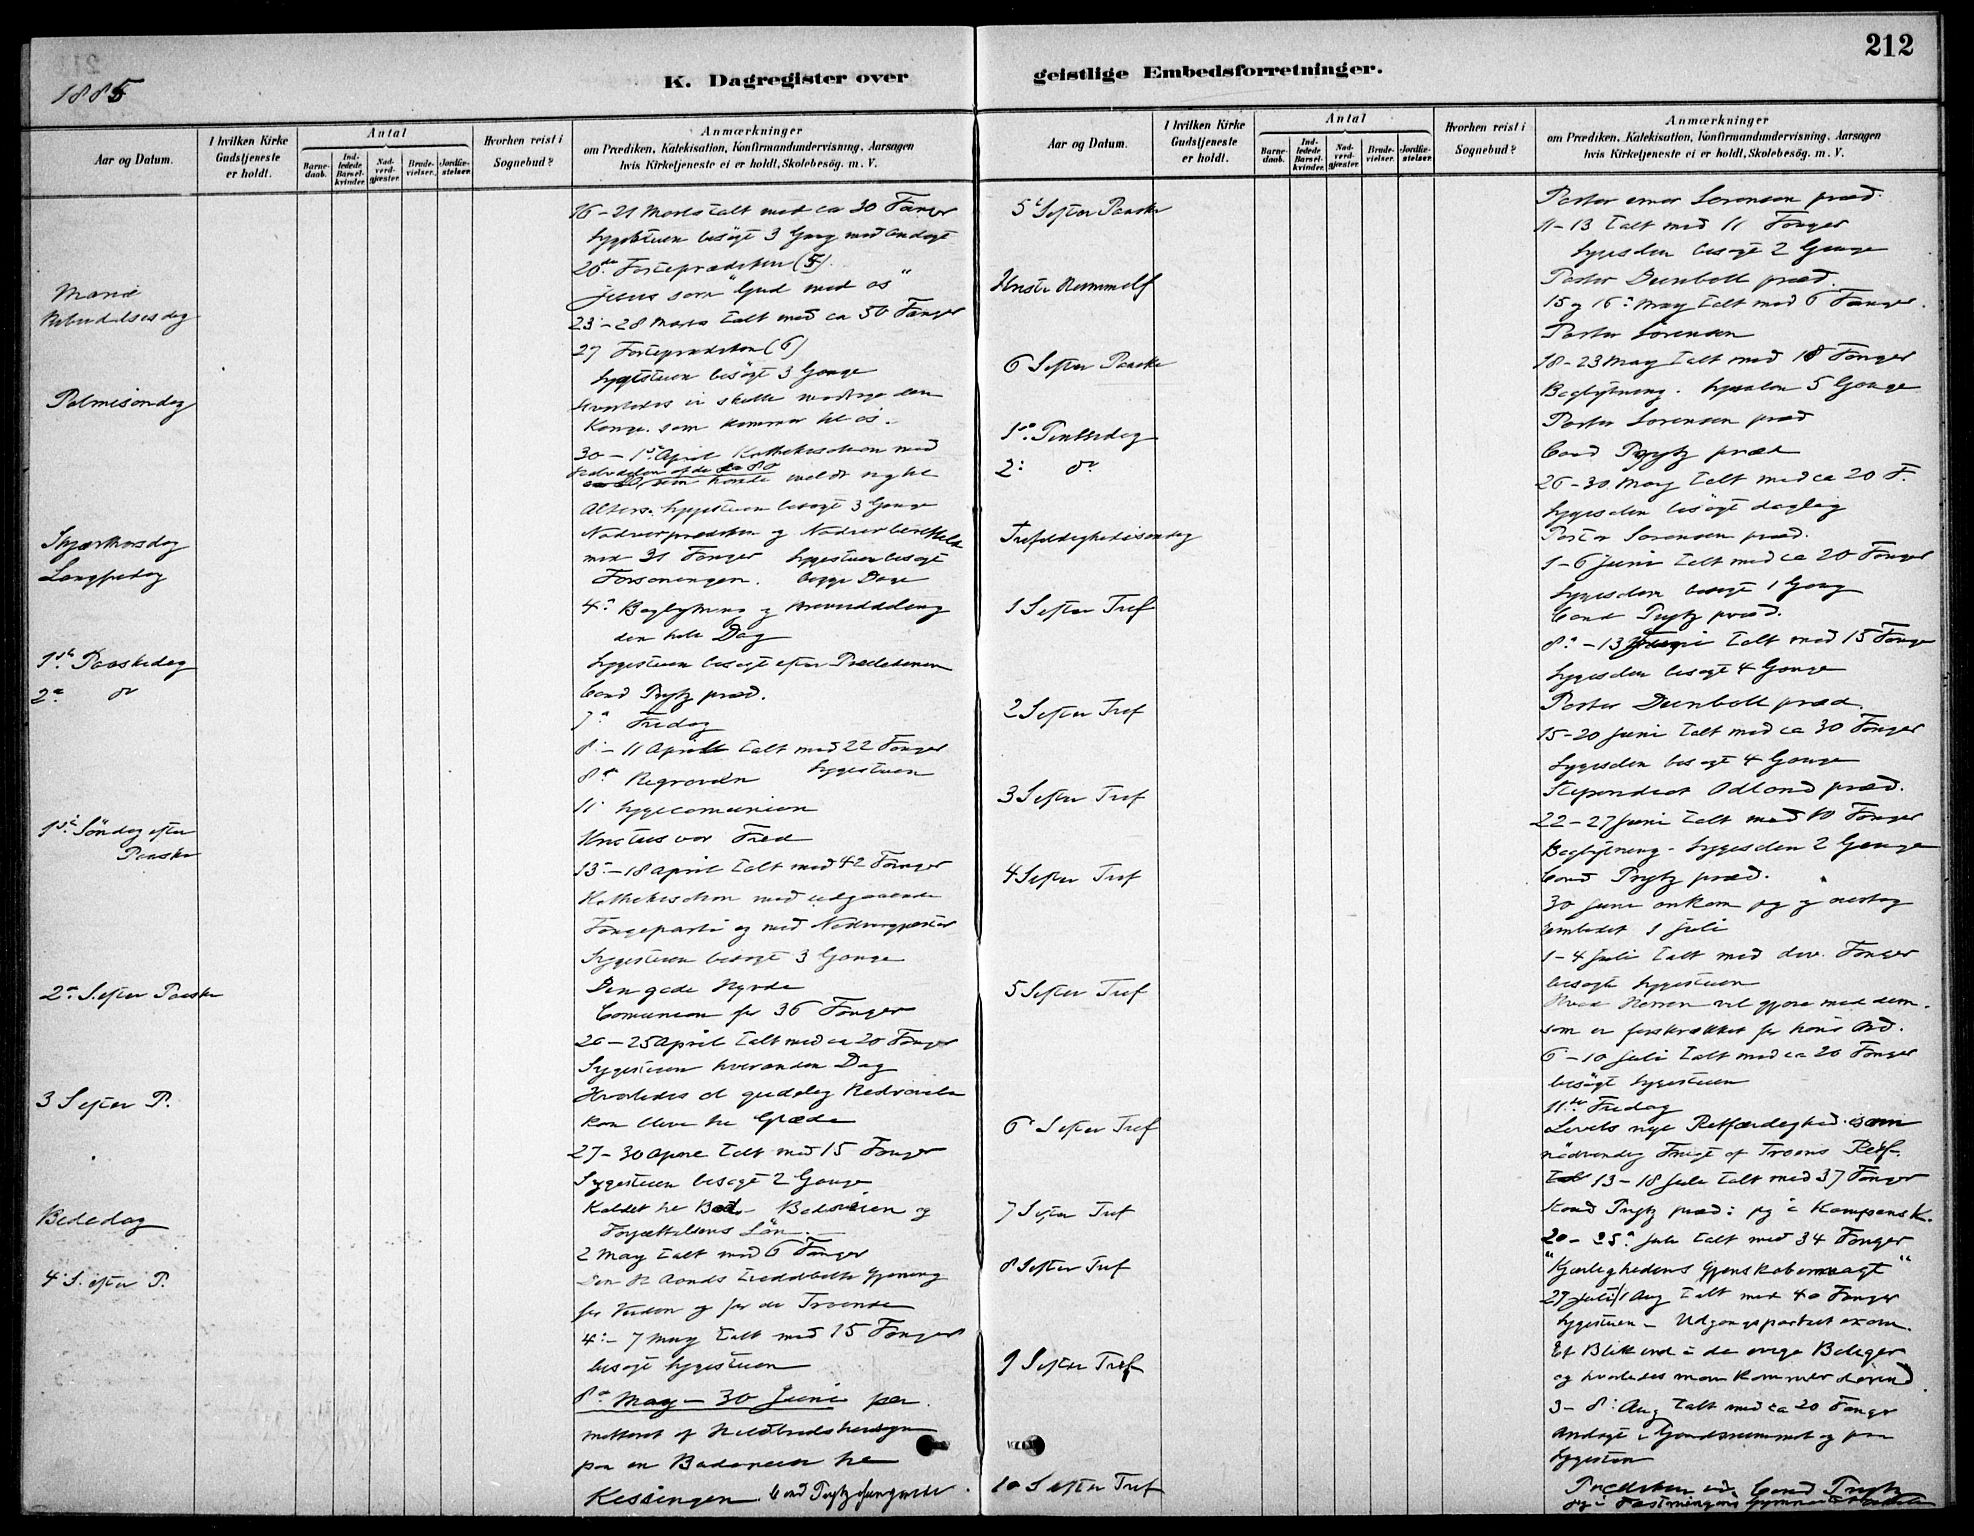 212
1885
K. Dagregister over
geistlige Embedsforretninger.
Aar og Datum.
I hvilken Kirke Gudstjeneste er holdt.
Antal
Barnedaab.
Indledede Barselkvinder.
Nadverdgjæster.
Brudevielser.
Jordfæstelser.
Hvorhen reist i Sognebud?
Anmærkninger
om Prædiken, Katekisation, Konfirmandundervisning, Aarsagen
hvis Kirketjeneste ei er holdt, Skolebesög. m. V.
16-21 Marts talt med ca 30 Fanger
Sygestuen besögt 3 Gang med Andagt
20de Fasteprædiken (5).
Mariæ
Jesus som "Gud med os"
Bebudelsesdag
23-28 Marts talt med ca 50 Fanger
27 Fasteprædiken (6)
Sygestuen besögt 3 Gange
Palmesöndag
Hvorledes vi skulle modtage den
Konge som kommer til os.
30-1ste April Kathekisation med
Alters. Sygestuen besögt 3 Gange
Skjærthorsdag
med 31 Fanger Sygestuen besögt
Langfredag
Forsoningen. begge Dage
4de
den hele Dag
1ste Paaskedag
Sygestuen besögt efter Prædikenen
2den do
Cand Prytz præd.
7de Fridag
8-11 April talt med 22 Fanger
8de Sygestuen
11 Sygecomunion
1ste Söndag efter
Paaske
Kristus vor Fred
13-18 April talt med 42 Fanger
Kathekisation med udgaaende
Fangeparti og med Nadvergjæster
Sygestuen besögt 3 Gange
2den S. efter Paaske
Den gode Hyrde
Comunion for 36 Fanger
20-25 April talt med ca 20 Fanger
Sygestuen hveranden Dag
3 S efter P.
Hvorledes al gudelig Bedrövelse
kan blive til Glæde
27-30 April talt med 15 Fanger
Sygestuen besögt 2 Gange
Bededag
Kaldet til Bod - Bodsveien og
2 May talt med 6 Fanger
4 S. efter P.
for Verden og for de Troende
4-7 May talt med 15 Fanger
besögt Sygestuen
8de May - 30 Juni per-
mitteret af Helbredshensyn
paa en Badereise til
Kissingen. Cand Prytz fungerede.
Aar og Datum.
I hvilken Kirke Gudstjeneste er holdt.
Antal
Barnedaab.
Indledede Barselkvinder.
Nadverdgjæster.
Brudevielser.
Jordfæstelser.
Hvorhen reist i Sognebud?
Anmærkninger
om Prædiken, Katekisation, Konfirmandundervisning, Aarsagen
hvis Kirketjeneste ei er holdt, Skolebesög. m. V.
5te S efter Paaske
Pastor Sörensen præd.
11-13 talt med 11 Fanger
Sygesalen besögt 2 Gange
Kristi Himmelf
Pastor Dunboll præd.
15 og 16de May talt med 6 Fanger.
Pastor Sörensen
6 S efter Paaske
18-23 May talt med 18 Fanger
Sygesalen 5 Gange
Pastor Sörensen præd
1ste Pintsedag
Cand Prytz præd
2 do
26-30 May talt med ca 20 F.
Sygesalen besögt daglig
Trefoldighedssöndag
Pastor Sörensen præd.
1-6 Juni talt med ca 20 Fanger
Sygesalen besögt 1 Gang
1 S efter Tref
Cand Prytz præd.
8de-13 Juni talt med 15 Fanger
Sygesalen besögt 4 Gange
2 S efter Tref
Pastor Dunboll præd.
15-20 Juni talt med ca 30 Fanger
Sygesalen besögt 4 Gange
3 S efter Tref
Stipendiat Odland præd.
22-27 Juni talt med 10 Fanger
Sygesalen 2 Gange
4 S efter Tref
Cand Prytz præd.
30 Juni ankom jeg og overtog
Embedet 1 Juli
1-4 Juli talt med div. Fanger
besögt Sygestuen
5 S efter Tref
Hvad Herren vil gjöre med dem
som er forskrækket for hans Ord.
6-10 Juli talt med ca 20 Fanger
besögt Sygestuen
11te Fridag
6 S efter Tref
Livets nye Retfærdighed som
nödvendig Frugt af Troens Retf.
13-18 Juli talt med 37 Fanger
7 S efter Tref
Kand Prytz præd: jeg i Kampens K.
20-25de Juli talt med 34 Fanger
8 S efter Tref
"Kjærlighedens Gjenskabermagt"
27 Juli/1 Aug talt med 40 Fanger
Sygestuen - Udgangspartiet exam.
9 S efter Tref
Et Blik ind i de evige Boliger
og hvorledes man kommer derind.
3-8 Aug talt med ca 20 Fanger
Andagt i Gaardsrummet og paa
Sygestuen
10 S efter Tref
Prædiken ved Cand Prytz
jeg i Fæstningens